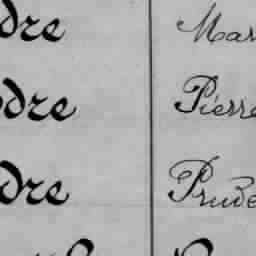 dre Mar
dre Pierre
dre Prude